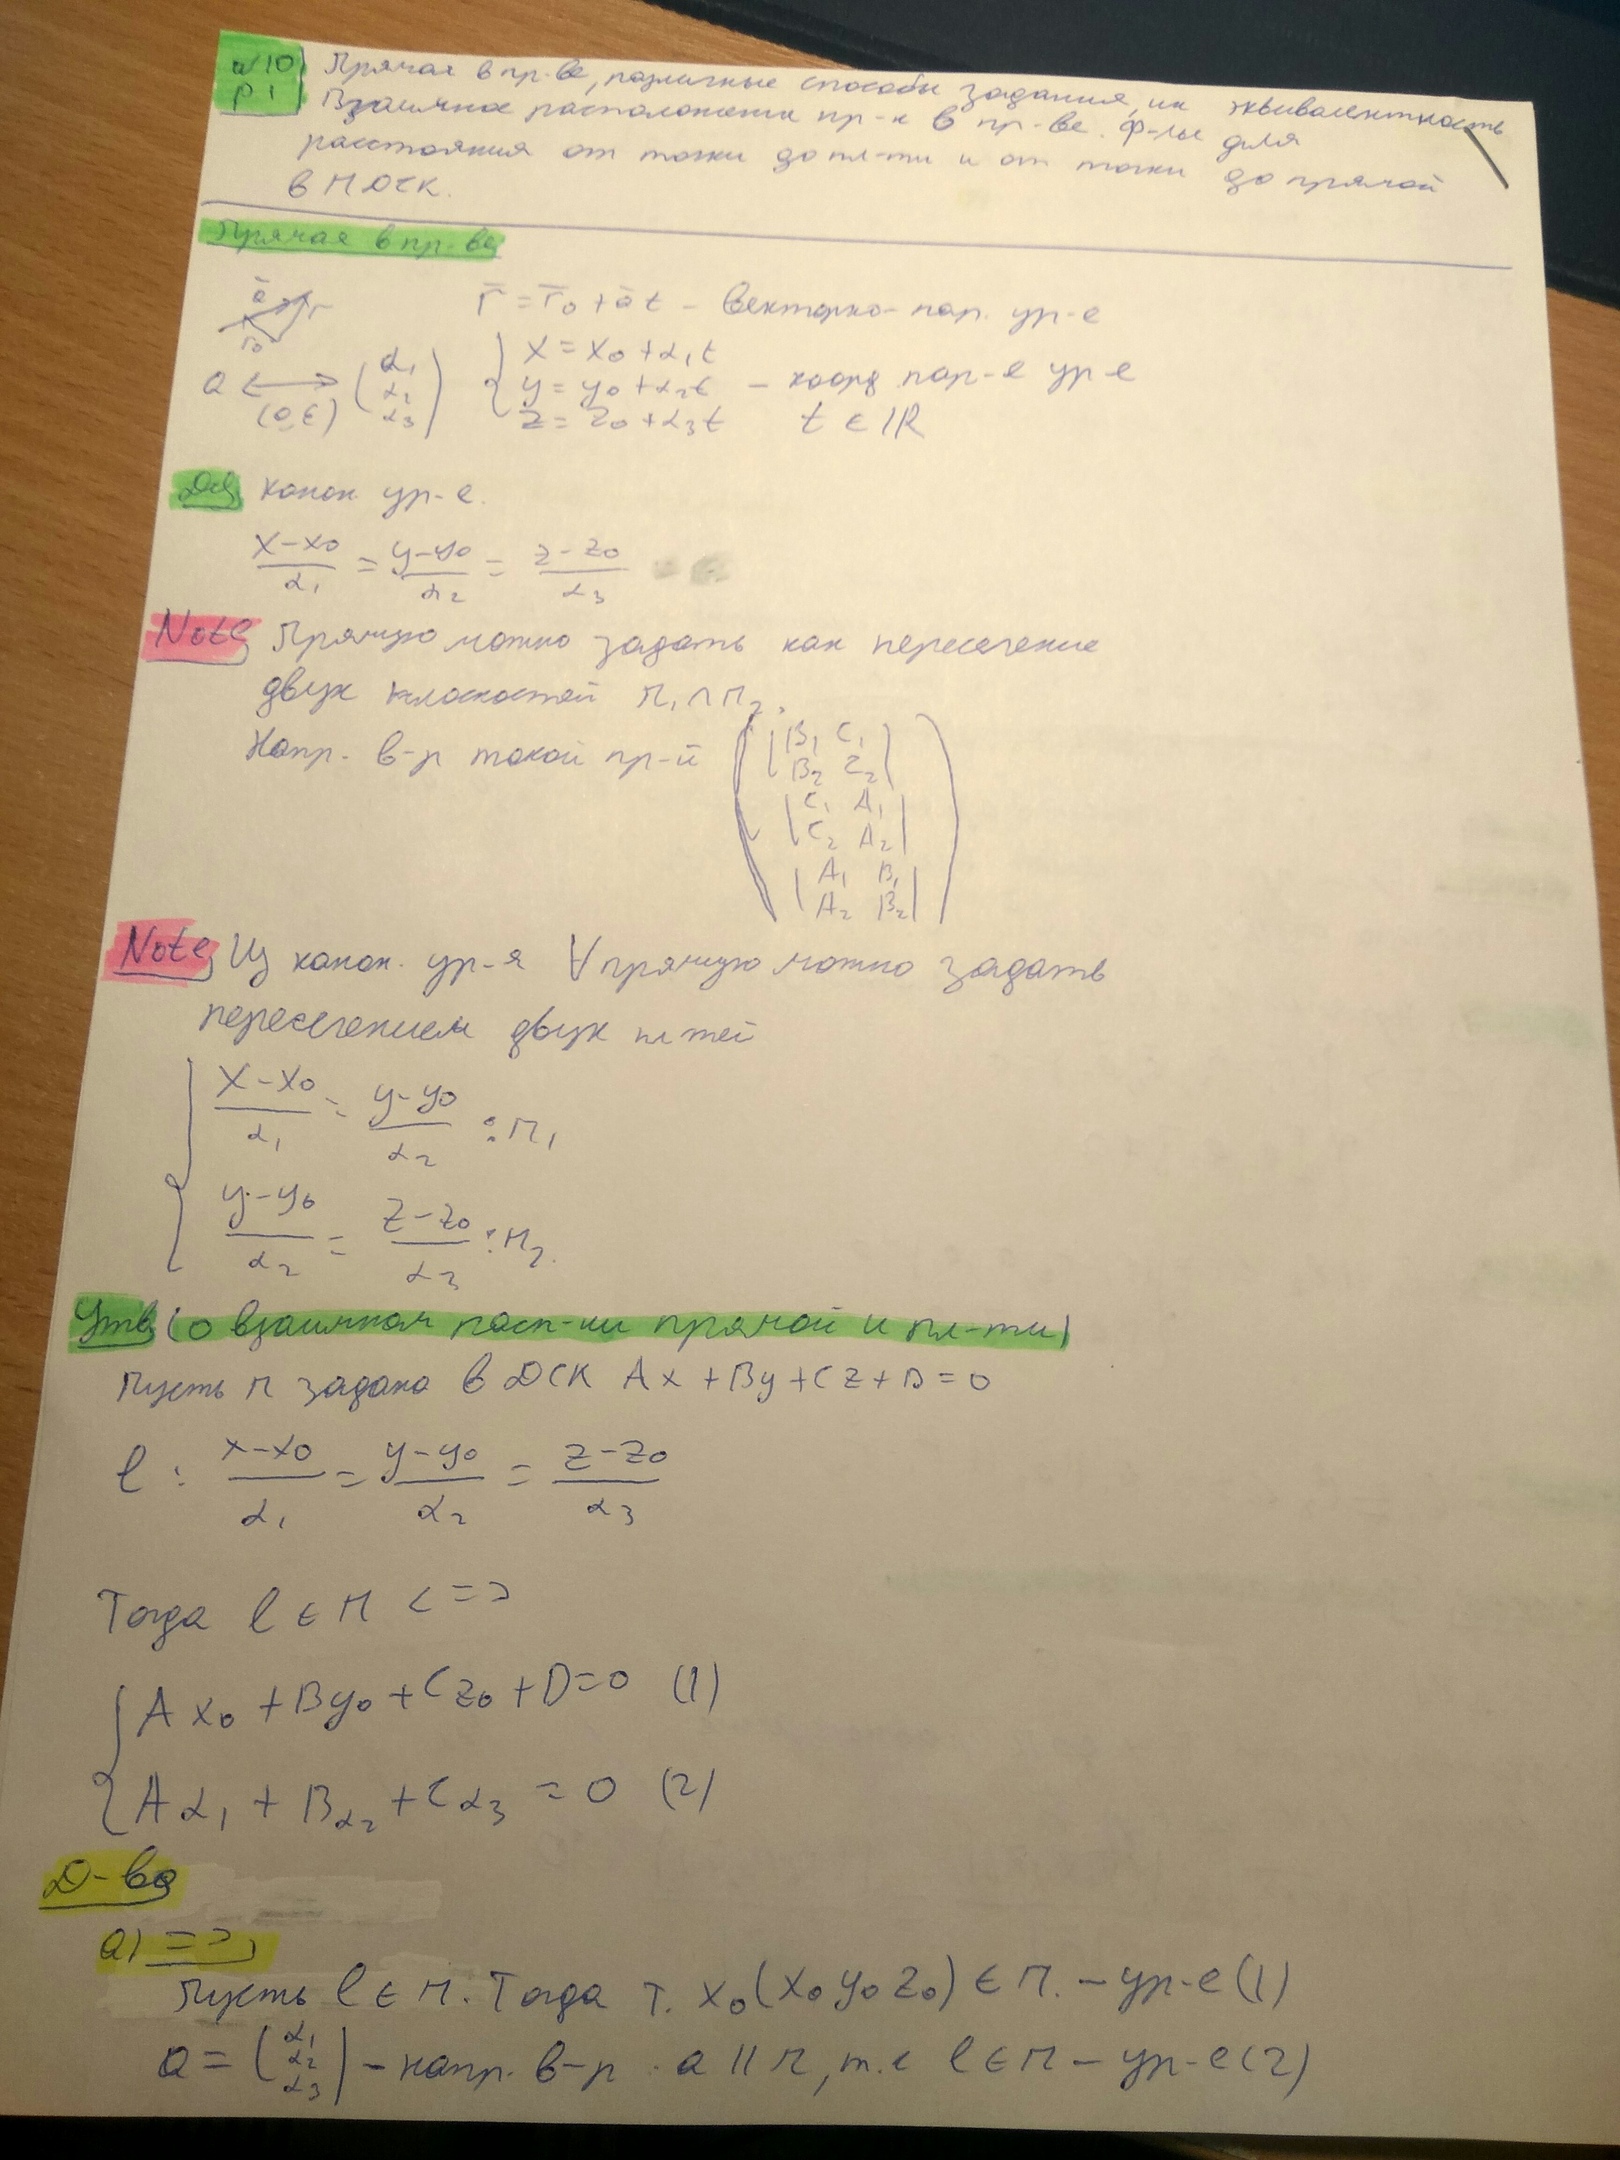 №10 Прямая в пр-ве, различные способы задания, их эквивалентность
p 1 Взаимное расположение пр-х в пр-ве. Ф-лы для
расстояния от точки до пл-ти и от точки до прямой
в ПДСК.
Прямая в пр-ве
ā r r₀
r̄ = r̄₀ + āt – векторно-пар. ур-е
a ⟷ (α₁ α₂ α₃)
(O E)
{ x = x₀ + α₁t
y = y₀ + α₂t – коорд пар-е ур-е
z = z₀ + α₃t t ∈ ℝ
Def канон ур-е.
(x-x₀)/α₁ = (y-y₀)/α₂ = (z-z₀)/α₃
Note Прямую можно задать как пересечение
двух плоскостей П₁∩П₂.
Напр. в-р такой пр-й ( |B₁ C₁|
|B₂ C₂|
|C₁ A₁|
|C₂ A₂|
|A₁ B₁|
|A₂ B₂| )
Note Из канон. ур-я ∀ прямую можно задать
пересечением двух пл-тей
{ (x-x₀)/α₁ = (y-y₀)/α₂ : П₁
(y-y₀)/α₂ = (z-z₀)/α₃ : П₂.
Утв (о взаимном расп-ии прямой и пл-ти)
Пусть П задана в ДСК Ax+By+Cz+D=0
l : (x-x₀)/α₁ = (y-y₀)/α₂ = (z-z₀)/α₃
Тогда l ∈ П <=>
{ Ax₀ + By₀ + Cz₀ + D=0 (1)
Aα₁ + Bα₂ + Cα₃ = 0 (2)
Д-во
a) =>
Пусть l ∈ П. Тогда т. X₀(x₀ y₀ z₀) ∈ П. – ур-е (1)
a = (α₁ α₂ α₃) – напр. в-р. a || П, т.к l ∈ П – ур-е (2)